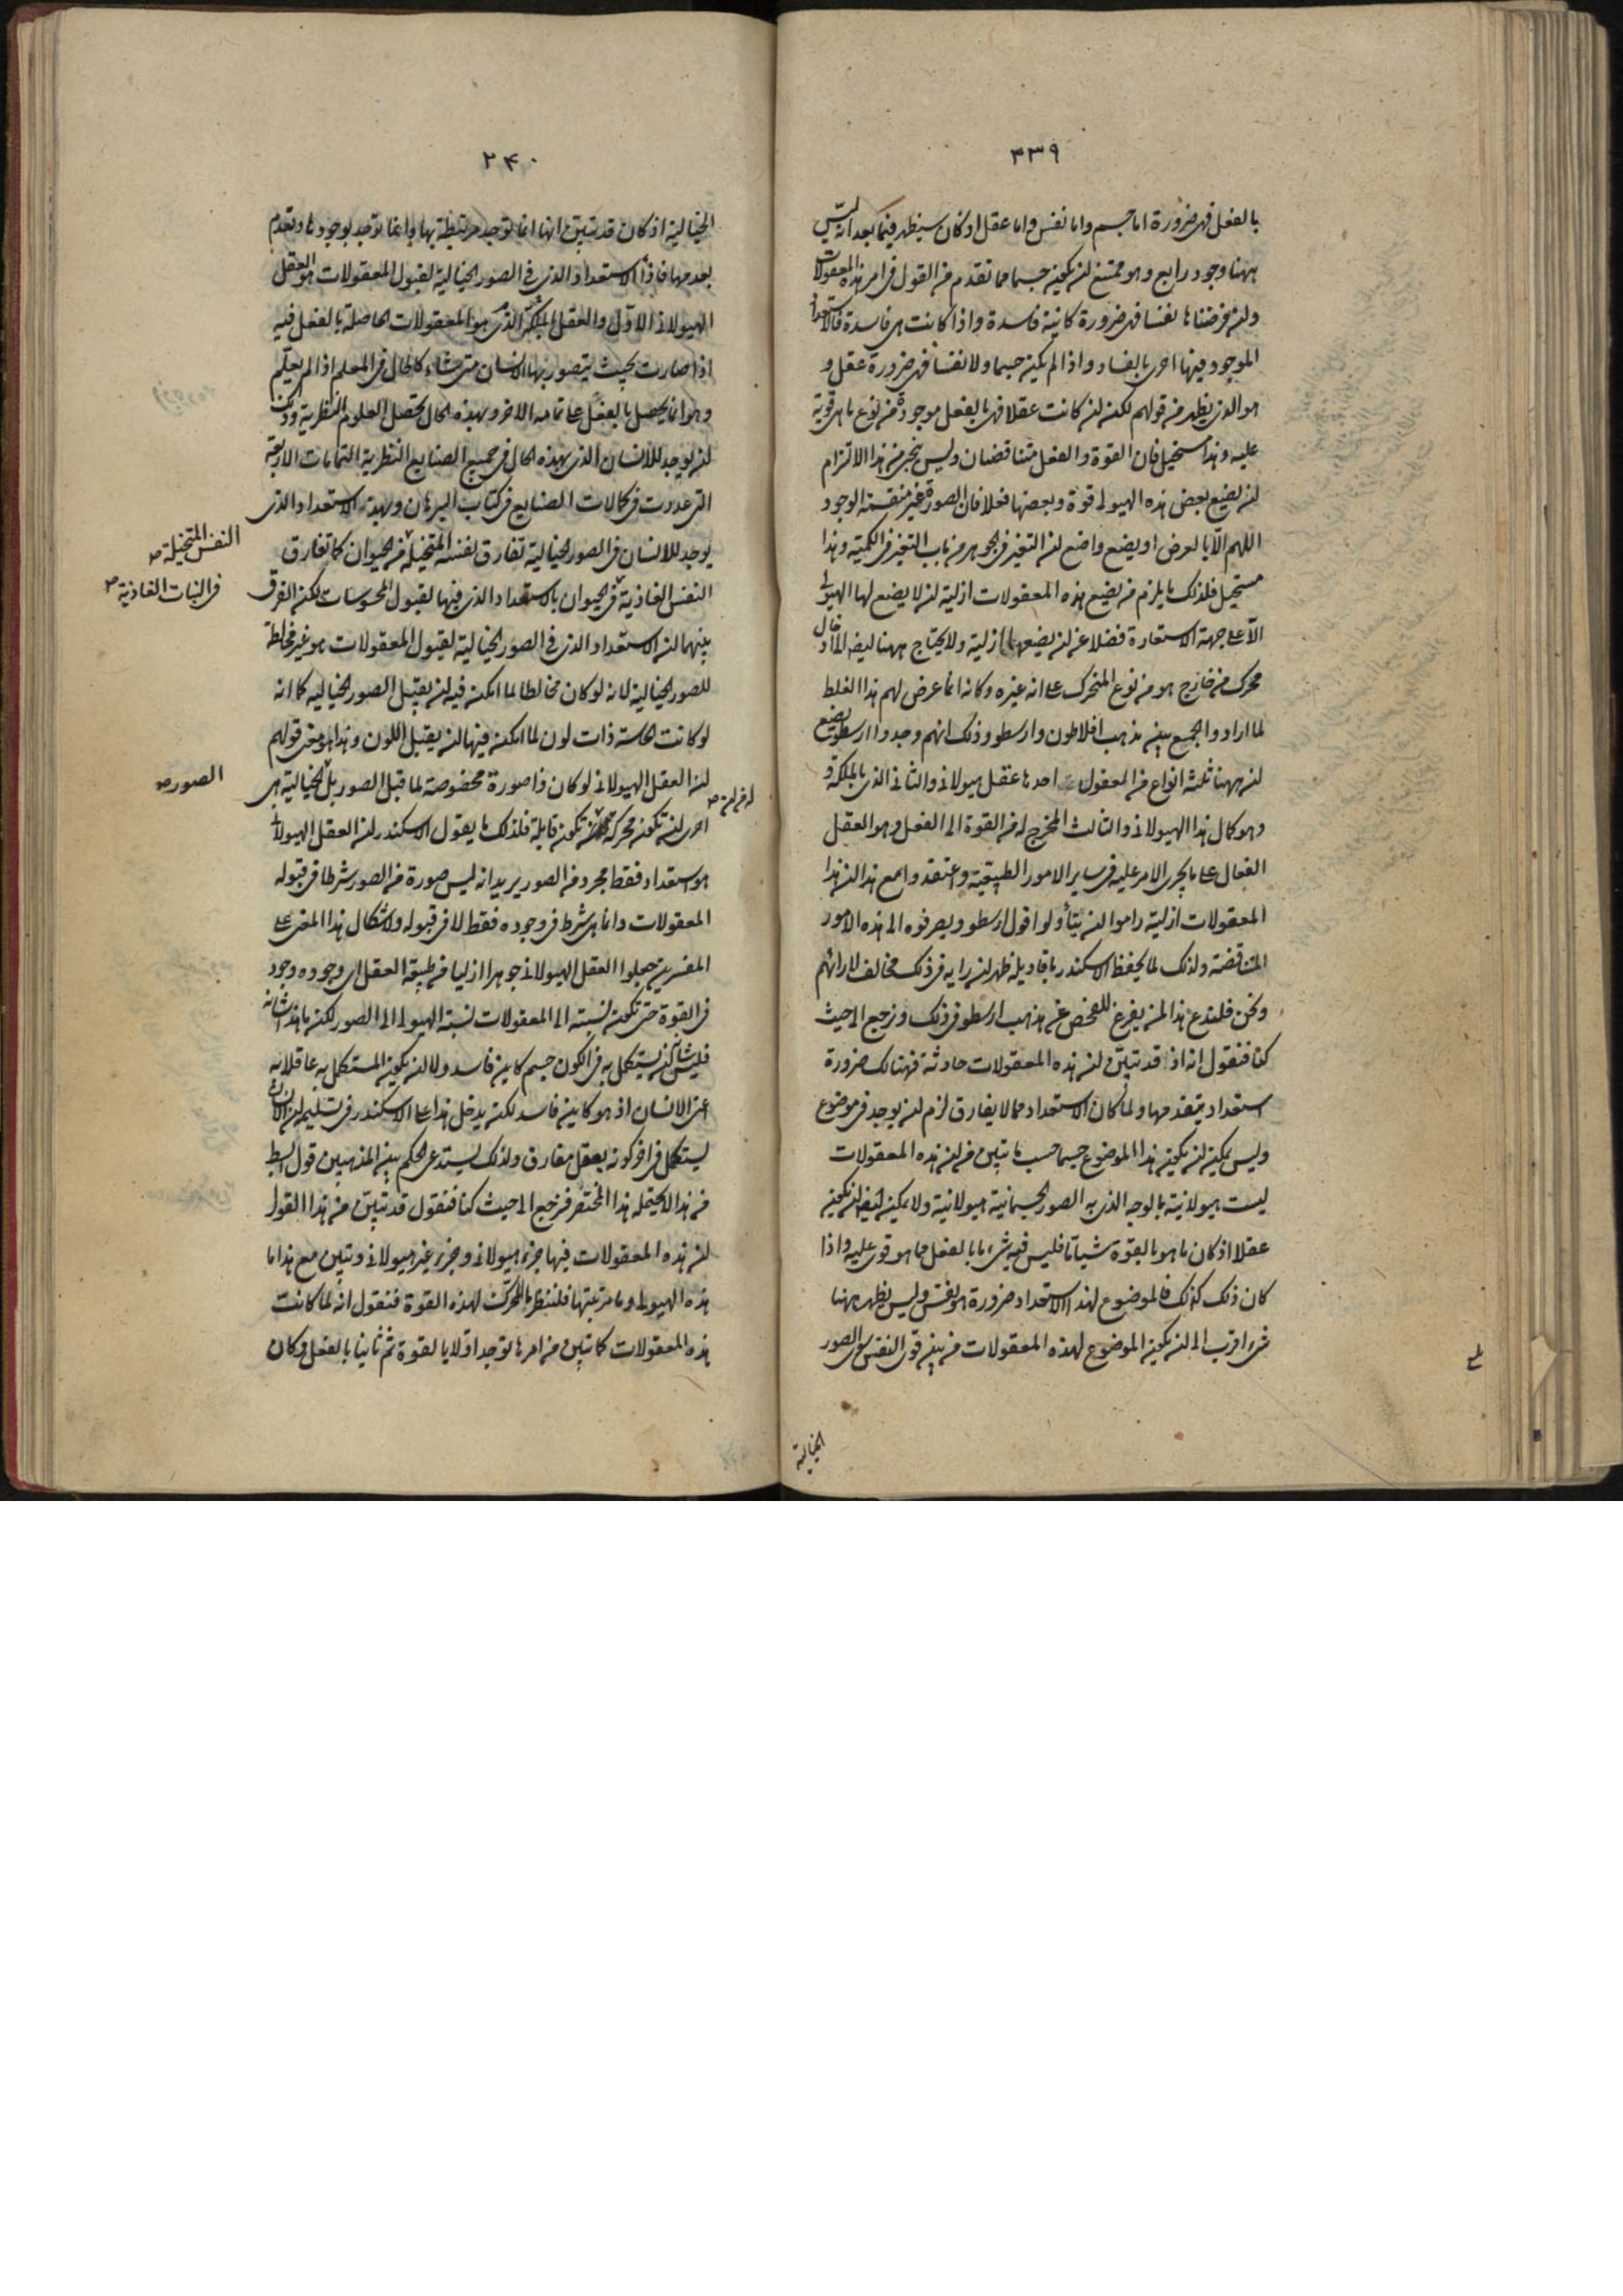 ٣٣٩
بالفعل فهى ضرورة اما جسم واما نفس واما عقل اذ كان سيظهر فيما بعد انه ليس
ههنا وجود رابع وهو ممتنع ان يكون جسما مما تقدم من القول فى امر هذه المعقولات
وان فرضناها نفسا فهى ضرورة كائنة فاسدة واذا كانت هى فاسدة فالاستعداد
الموجود فيها احرى بالفساد واذا لم يكن جسما ولا نفسا فهى ضرورة عقل و
هو الذى يظهر من قولهم لكن ان كانت عقلا فهى بالفعل موجودة من نوع ما هى قوية
عليه وهذا مستحيل فان القوة والفعل متناقضان وليس ينجى من هذا الالزام
ان نضع بعض هذه الهيولى قوة وبعضها فعلا فان الصورة غير منقسمة الوجود
اللهم الا بالعرض او يضع واضع ان التغير فى الجوهر من باب التغير فى الكمية وهذا
مستحيل فلذلك ما يلزم من يضع هذه المعقولات ازلية ان لا يضع لها الهيولى
الا على جهة الاستعارة فضلا عن ان يضعها ازلية ولا يحتاج ههنا ايضا الى ادخال
محرك من خارج هو من نوع المتحرك على انه غيره وكانه انما عرض لهم هذا الغلط
لما ارادوا الجمع بين مذهب افلاطون وارسطو وذلك انهم وجدوا ارسطو يضع
ان ههنا ثلثة انواع من المعقول احدها عقل هيولانى والثانى الذى بالملكة و
وهو كمال هذا الهيولانى والثالث المخرج له من القوة الى الفعل وهو العقل
الفعال على ما يجرى الامر عليه فى ساير الامور الطبيعية واعتقدوا مع هذا ان هذا
المعقولات ازلية راموا ان يتأولوا قول ارسطو ويصرفوه الى هذه الامور
المتناقضة ولذلك لما يحفظ الاسكندر باقاويله ظهر ان رايه فى ذلك مخالف لارائهم
ونحن فلندع هذا لمن يفرغ للفحص عن مذهب ارسطو فى ذلك ونرجع الى حيث
كنا فنقول انه اذ قد تبين ان هذه المعقولات حادثة فهنالك ضرورة
استعداد يتقدمها ولما كان الاستعداد مما لا يفارق لزم ان يوجد فى موضوع
وليس يمكن ان يكون هذا الموضوع جسما حسب ما تبين من ان هذه المعقولات
ليست هيولانية بالوجه الذى به الصور الجسمانية هيولانية ولا يمكن ايضا ان يكون
عقلا اذ كان ما هو بالقوة شيا ما فليس فيه شىء ما بالفعل مما هو قوى عليه واذا
كان ذلك كذلك فالموضوع لهذا الاستعداد ضرورة هو نفس وليس يظهر ههنا
شىء اقرب الى ان يكون الموضوع لهذه المعقولات من بين قوى النفس سوى الصور
الخيالية
٢٤٠
الخيالية اذ كان قد تبين انها انما توجد مرتبطة بها وانها توجد بوجودها وتعدم
بعدمها فاذا الاستعداد الذى فى الصور الخيالية لقبول المعقولات هو العقل
الهيولانى الاول والعقل بالملكة الذى هو المعقولات الحاصلة بالفعل فيه
اذا صارت بحيث يتصور بها الانسان متى شاء كالحال فى المعلم اذا لم يعلم
وهو انما يحصل بالفعل على تمامه الاخر وبهذه الحال تحصل العلوم النظرية وذلك
ان يوجد للانسان الذى بهذه الحال فى جميع الصنايع النظرية التمامات الاربعة
التى عددت فى كمالات الصنايع فى كتاب البرهان وبهذه الاستعداد الذى
يوجد للانسان فى الصور الخيالية تفارق نفسه المتخيلة فى الحيوان كما تفارق
النفس الغاذية فى الحيوان بالاستعداد الذى فيها لقبول المحسوسات لكن الفرق
بينهما ان الاستعداد الذى فى الصور الخيالية لقبول المعقولات هو غير مخالطة
للصور الخيالية لانه لو كان مخالطا لما امكن فيه ان يقبل الصور الخيالية كما انه
لو كانت الحاسة ذات لون لما امكن فيها ان يقبل اللون وهذا هو معنى قولهم
ان العقل الهيولانى لو كان ذا صورة مخصوصة لما قبل الصور بل الخيالية هى
احرى ان تكون محركة من ان تكون قابلة فلذلك ما يقول الاسكندر ان العقل الهيولانى
هو استعداد فقط مجرد من الصور يريد انه ليس صورة من الصور شرطا فى قبوله
المعقولات وانما هى شرط فى وجوده فقط لا فى قبوله ولاشكال هذا المعنى على
المفسرين جعلوا العقل الهيولانى جوهرا ازليا من طبيعة العقل اى وجوده وجود
فى القوة حتى تكون نسبته الى المعقولات نسبة الهيولى الى الصور لكن ما هذا شانه
فليس شانه ان يستكمل به فى الكون جسم كاين فاسد ولا ان يكون المستكمل به عاقلا به
اعنى الانسان اذ هو كاين فاسد لكن يدخل هذا على الاسكندر فى تسليمه ان الانسان
يستكمل فى اخر كونه بعقل مفارق ولذلك يستدعى الحكم بين المذهبين قول ابسط
من هذا لا يحتمله هذا المختصر فنرجع الى حيث كنا فنقول قد تبين من هذا القول
ان هذه المعقولات فيها جزء هيولانى وجزء غير هيولانى وتبين مع هذا ما
هذه الهيولى وما مرتبتها فلننظر ما المحرك لهذه القوة فنقول انه لما كانت
هذه المعقولات كما تبين من امرها توجد اولا بالقوة ثم ثانيا بالفعل وكان
النفس المتخيلة
فى النبات الغاذية
الصور